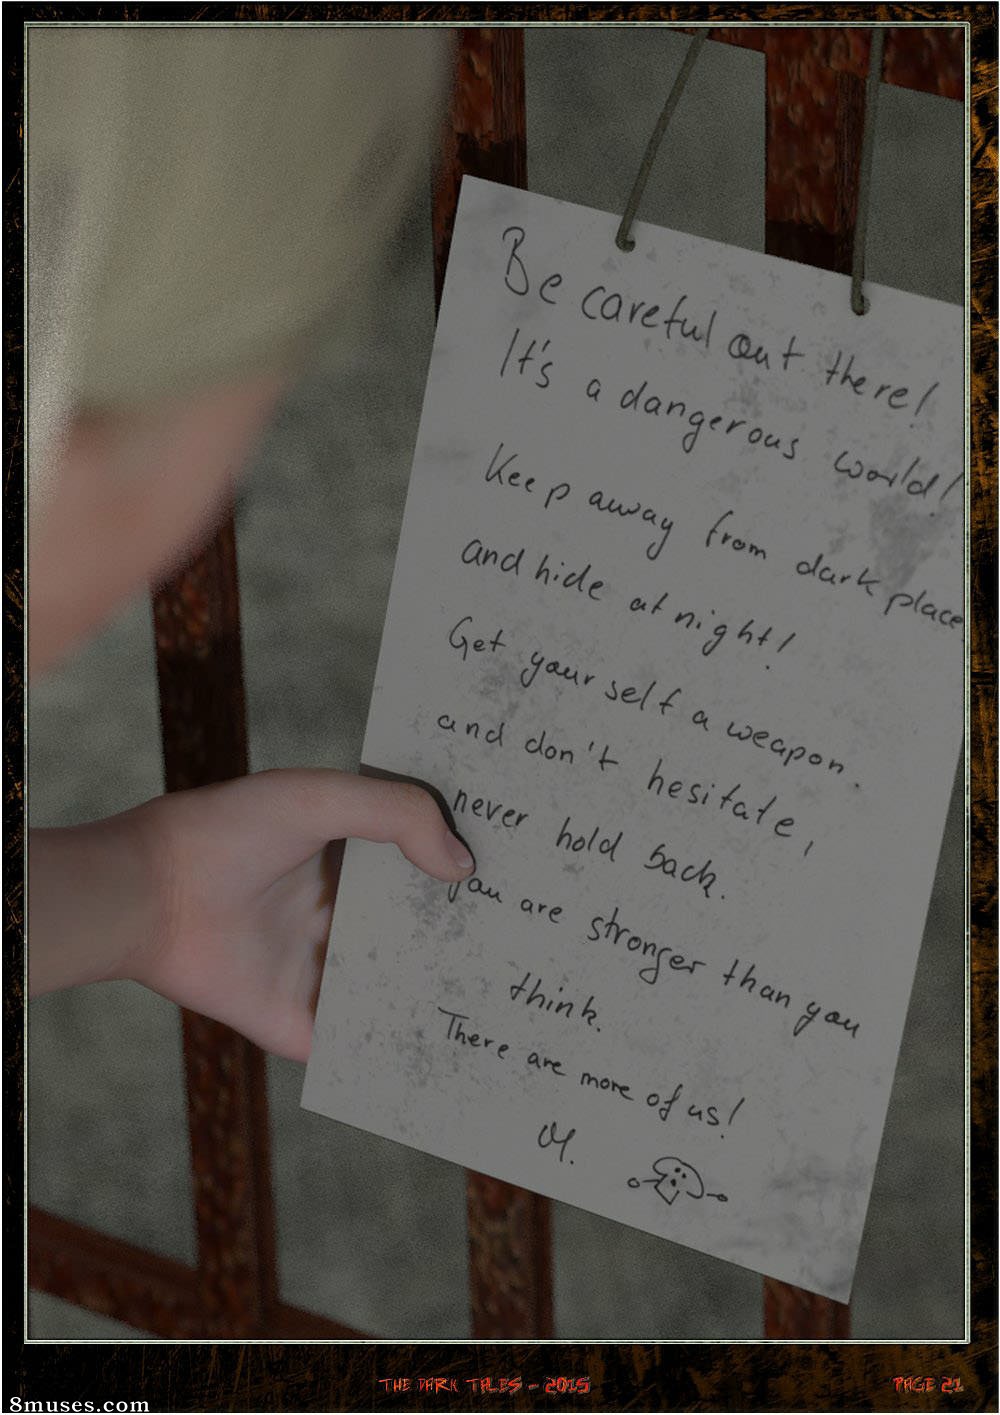 Be careful out there!
It's a dangerous world!
Keep away from dark place
and hide at night!
Get yourself a weapon.
and don't hesitate,
never hold back.
you are stronger than you
think.
There are more of us!
THE DARK TALES - 2015
PAGE 21
8muses.com